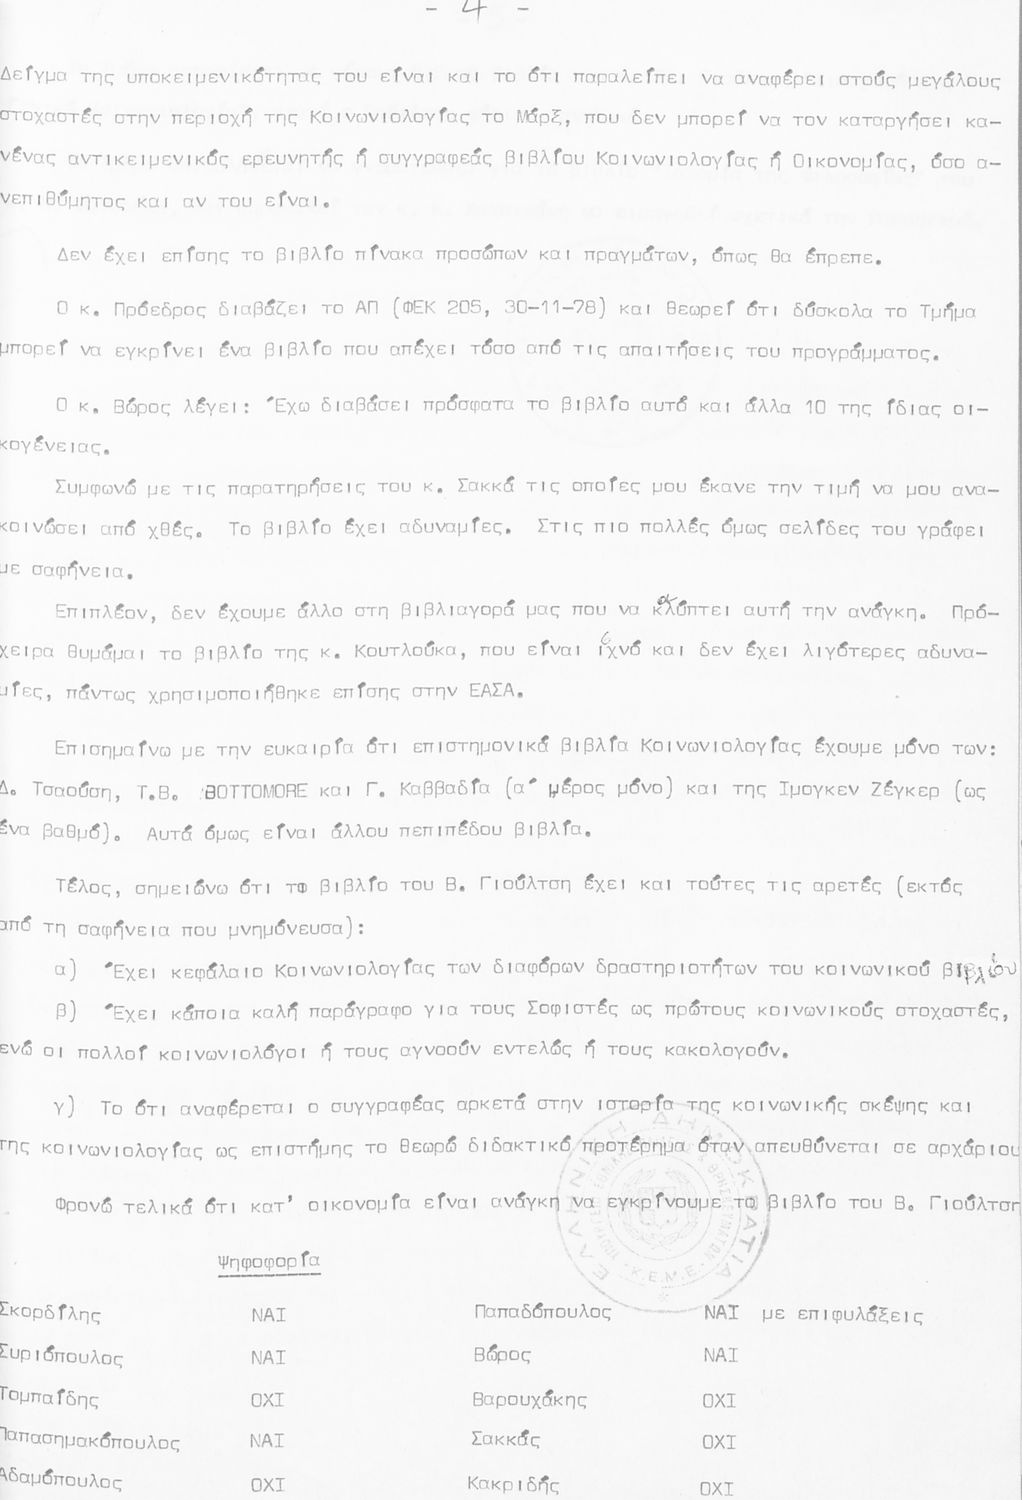 - 4 -
Δείγμα της υποκειμενικότητας του είναι και το ότι παραλείπει να αναφέρει στούς μεγάλους
στοχαστές στην περιοχή της Κοινωνιολογίας το Μάρξ, που δεν μπορεί να τον καταργήσει κα-
νένας αντικειμενικός ερευνητής ή συγγραφεάς βιβλίου Κοινωνιολογίας ή Οικονομίας, όσο α-
νεπιθύμητος και αν του είναι.
Δεν έχει επίσης το βιβλίο πίνακα προσώπων και πραγμάτων, όπως θα έπρεπε.
Ο κ. Πρόεδρος διαβάζει το ΑΠ (ΦΕΚ 205, 30-11-78) και θεωρεί ότι δύσκολα το Τμήμα
μπορεί να εγκρίνει ένα βιβλίο που απέχει τόσο από τις απαιτήσεις του προγράμματος.
Ο κ. Βώρος λέγει: Έχω διαβάσει πρόσφατα το βιβλίο αυτό και άλλα 10 της ίδιας οι-
κογένειας.
Συμφωνώ με τις παρατηρήσεις του κ. Σακκά τις οποίες μου έκανε την τιμή να μου ανα-
κοινώσει από χθές. Το βιβλίο έχει αδυναμίες. Στις πιο πολλές όμως σελίδες του γράφει
με σαφήνεια.
Επιπλέον, δεν έχουμε άλλο στη βιβλιαγορά μας που να καλύπτει αυτή την ανάγκη. Πρό-
χειρα θυμάμαι το βιβλίο της κ. Κουτλούκα, που είναι ισχνό και δεν έχει λιγότερες αδυνα-
μίες, πάντως χρησιμοποιήθηκε επίσης στην ΕΑΣΑ.
Επισημαίνω με την ευκαιρία ότι επιστημονικά βιβλία Κοινωνιολογίας έχουμε μόνο των:
Δ. Τσαούση, Τ.Β. BOTTOMORE και Γ. Καββαδία (α΄ μέρος μόνο) και της Ιμογκεν Ζέγκερ (ως
ένα βαθμό). Αυτά όμως είναι άλλου πεπιπέδου βιβλία.
Τέλος, σημειώνω ότι το βιβλίο του Β. Γιούλτση έχει και τούτες τις αρετές (εκτός
από τη σαφήνεια που μνημόνευσα):
α) Έχει κεφάλαιο Κοινωνιολογίας των διαφόρων δραστηριοτήτων του κοινωνικού βίου
β) Έχει κάποια καλή παράγραφο για τους Σοφιστές ως πρώτους κοινωνικούς στοχαστές,
ενώ οι πολλοί κοινωνιολόγοι ή τους αγνοούν εντελώς ή τους κακολογούν.
γ) Το ότι αναφέρεται ο συγγραφέας αρκετά στην ιστορία της κοινωνικής σκέψης και
της κοινωνιολογίας ως επιστήμης το θεωρώ διδακτικό προτέρημα όταν απευθύνεται σε αρχάριου
Φρονώ τελικά ότι κατ' οικονομία είναι ανάγκη να εγκρίνουμε το βιβλίο του Β. Γιούλτση
ΕΛΛΗΝΙΚΗ ΔΗΜΟΚΡΑΤΙΑ
Κ.Ε.Μ.Ε.
Ψηφοφορία
Σκορδίλης ΝΑΙ Παπαδόπουλος ΝΑΙ με επιφυλάξεις
Συριόπουλος ΝΑΙ Βώρος ΝΑΙ
Τομπαΐδης ΟΧΙ Βαρουχάκης ΟΧΙ
Παπασημακόπουλος ΝΑΙ Σακκάς ΟΧΙ
Αδαμόπουλος ΟΧΙ Κακριδής ΟΧΙ